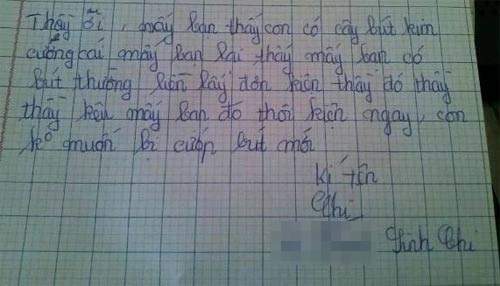 Thầy ơi, mấy bạn thấy con có cây bút kim
cương cái mấy bạn lại thấy mấy bạn có
bút thường liền lấy đơn kiện thầy đó thầy
thầy kêu mấy bạn đó thôi kiện ngay, con
kố muốn bị cướp bút mới
Kí tên
Chi
Linh Chi